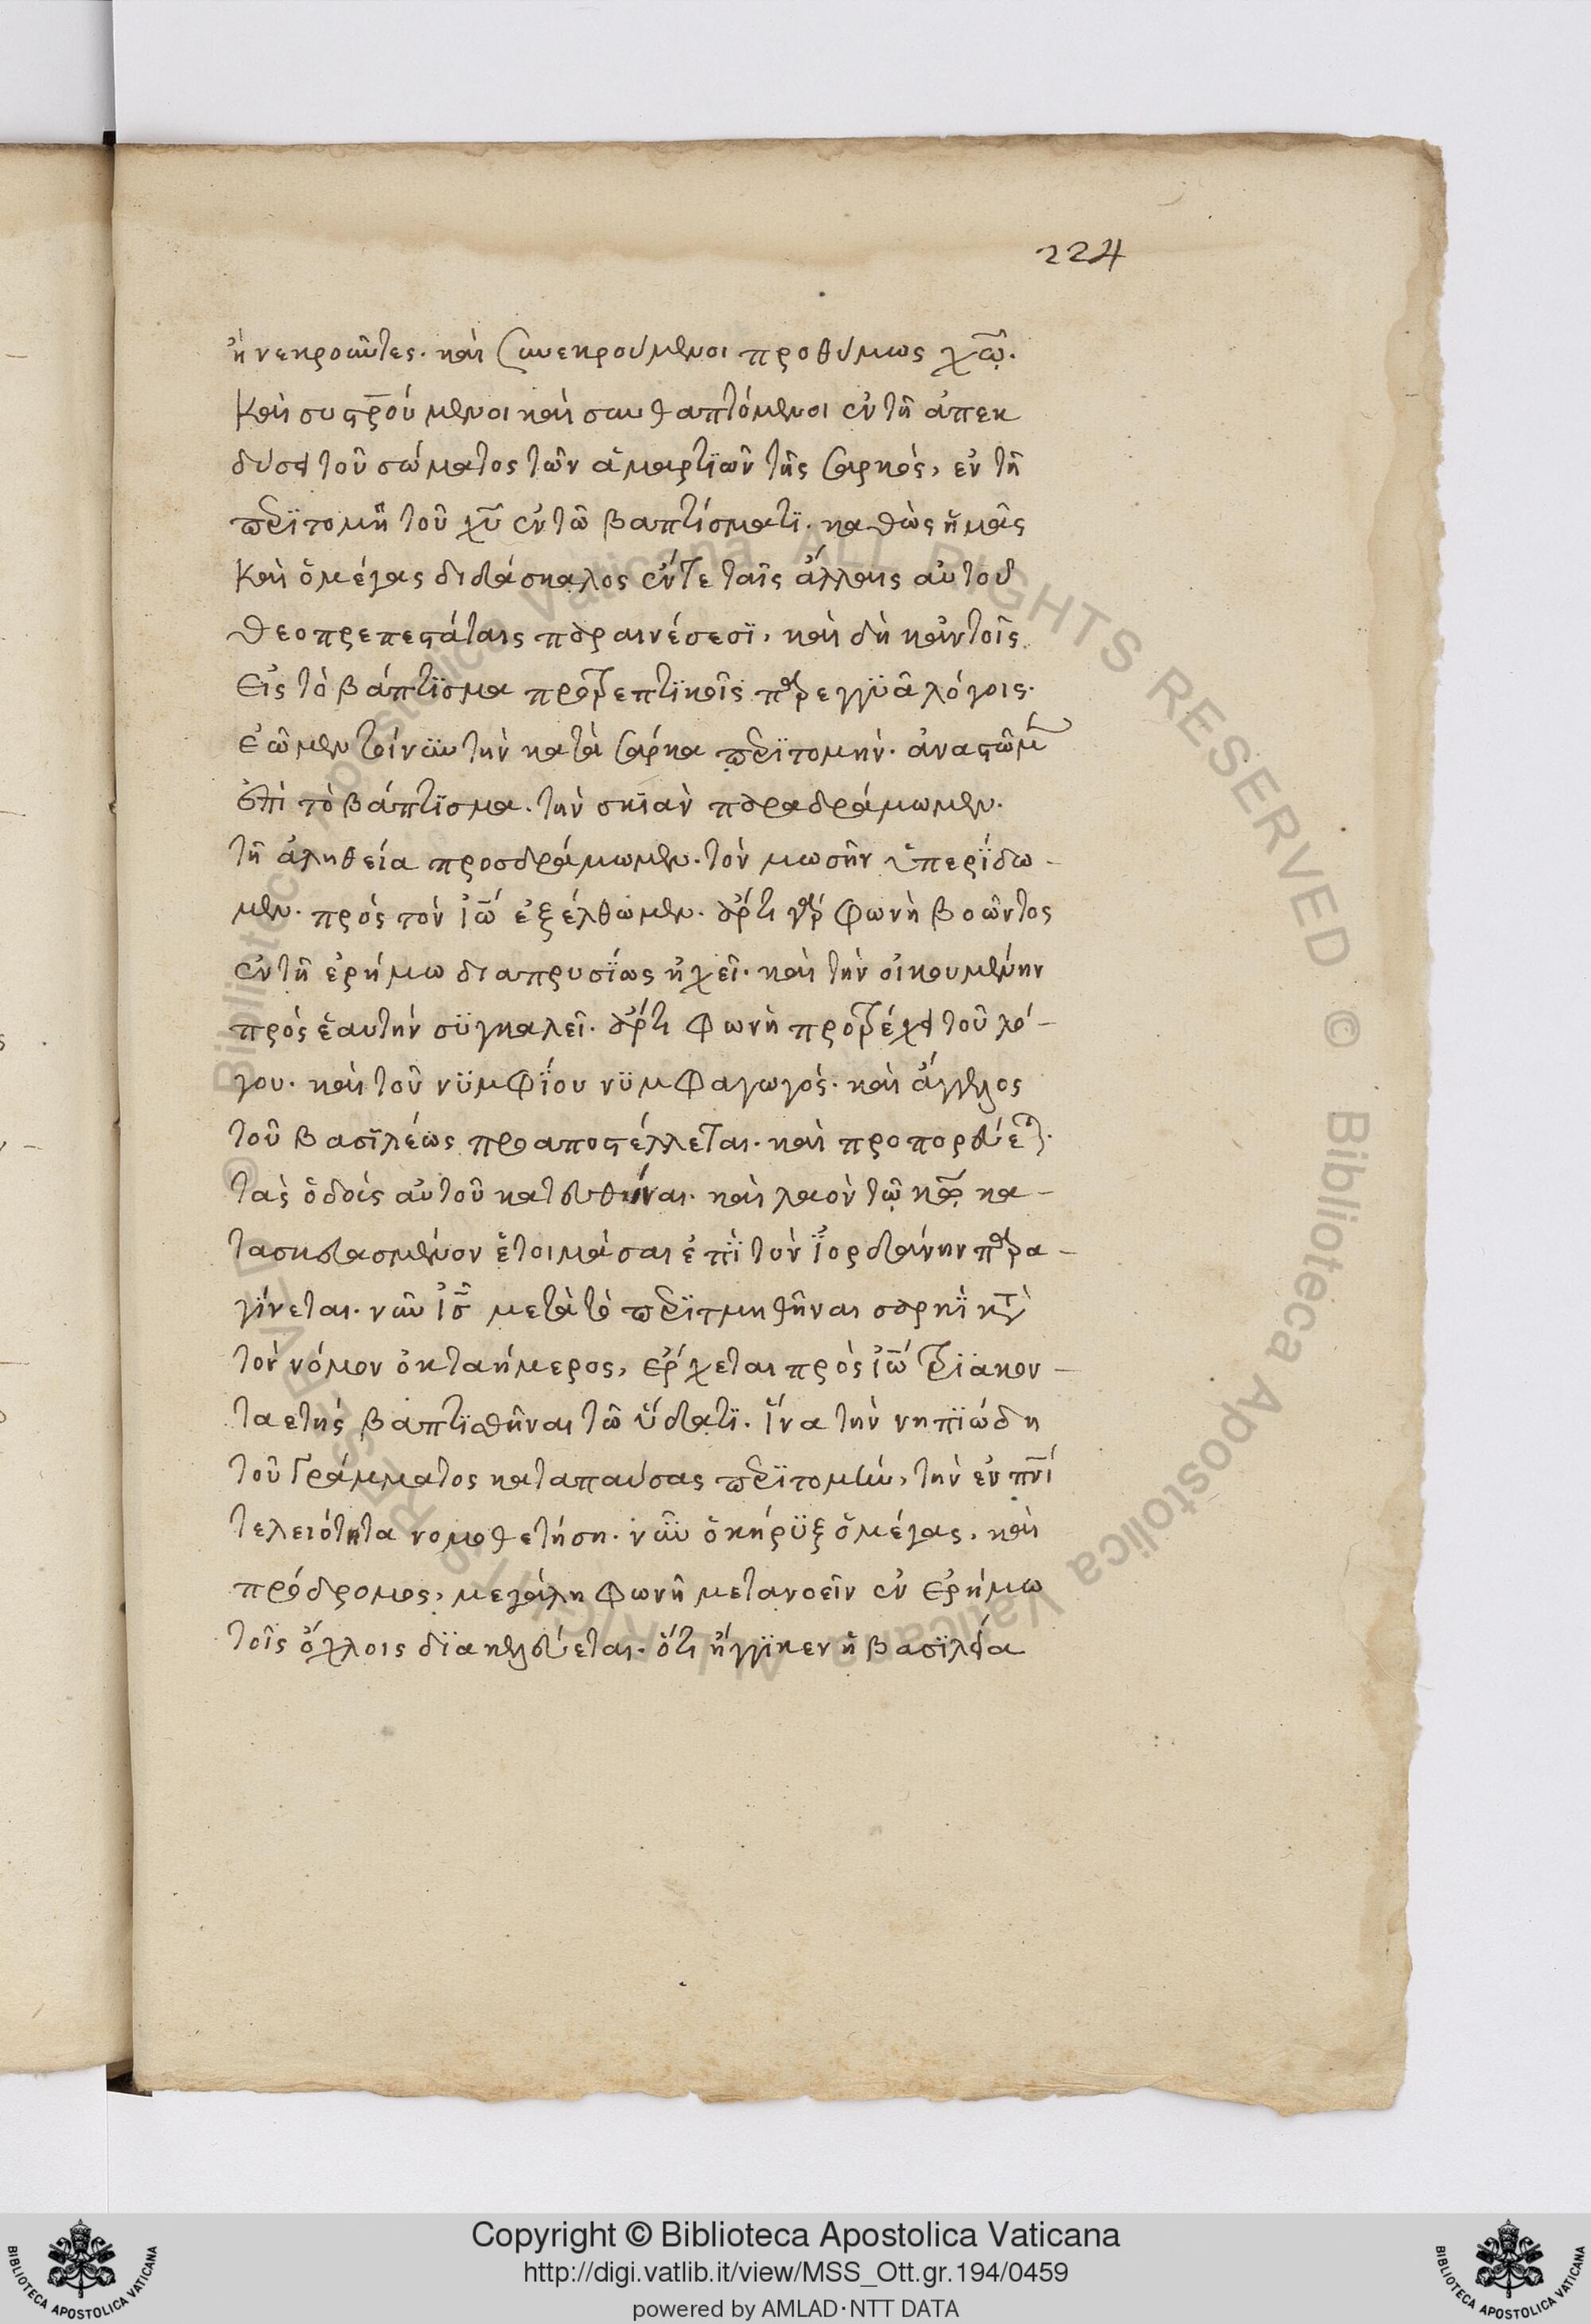 224
ἢ νεκροῦντες. καὶ συνεκρούμενοι προθύμως χῶ.
Καὶ συσταυρούμενοι καὶ συνθαπτόμενοι ἐν τῆ ἀπεκ
δύσει τοῦ σώματος τῶν ἁμαρτϊῶν τῆς σαρκὸς, ἐν τῆ
περϊτομῆ τοῦ χῦ ἐν τῶ βαπτίσματϊ. καθὼς ἡμᾶς
Καὶ ὁ μέγας διδάσκαλος ἔν τε ταῖς ἄλλαις αὐτοῦ
θεοπρεπεστάταις παραινέσεσϊ, καὶ δὴ κἀν τοῖς
εἰς τὸ βάπτϊσμα προτρεπτϊκοῖς παρεγγϋᾶ λόγοις.
ἐῶμεν τοίνϋν τὴν κατὰ σάρκα περϊτομήν. ἀναστῶμεν
ἐπὶ τὸ βάπτϊσμα. τὴν σκϊὰν παραδράμωμεν.
τῆ ἀληθεία προσδράμωμεν. τὸν μωσῆν ὑπερϊδω-
μεν. πρὸς τὸν ἰω̅ ἐξέλθωμεν. ἄρτι γὰρ φωνὴ βοῶντος
ἐν τῆ ἐρήμω διαπρυσΐως ἠχεῖ. καὶ τὴν οἰκουμένην
πρὸς ἑαυτὴν σϋγκαλεῖ. ἄρτι φωνὴ προτρέχει τοῦ λό-
γου. καὶ τοῦ νϋμφΐου νϋμφαγωγός. καὶ ἄγγελος
τοῦ βασϊλέως προαποστέλλεται. καὶ προπορεύεται.
τὰς ὁδοὺς αὐτοῦ κατευθύναι. καὶ λαὸν τῶ κω̅ κα-
τασκευασμένον ἑτοιμάσαι ἐπῒ τὸν ϊορδάνην παρα-
γίνεται. νῦν ἰς̅ μετὰ τὸ περϊτμηθῆναι σαρκῒ κατὰ
τὸν νόμον ὀκταήμερος, ἔρχεται πρὸς ἰω̅ τρϊακον-
ταετὴς βαπτϊσθῆναι τῶ ὕδατϊ. ἵνα τὴν νηπϊώδη
τοῦ γράμματος καταπαύσας περϊτομὴν, τὴν ἐν πν̅ι
τελειότητα νομοθετήση. νῦν ὁ κήρϋξ ὁ μέγας, καὶ
πρόδρομος, μεγάλη φωνῆ μετανοεῖν ἐν ἐρήμω
τοῖς ὄχλοις δϊακελεύεται. ὅτι ἤγγϊκεν ἡ βασϊλεία
© Biblioteca Apostolica Vaticana ALL RIGHTS RESERVED © Biblioteca Apostolica Vaticana ALL RIGHTS RESERVED
Copyright © Biblioteca Apostolica Vaticana
http://digi.vatlib.it/view/MSS_Ott.gr.194/0459
powered by AMLAD·NTT DATA
BIBLIOTECA APOSTOLICA VATICANA
BIBLIOTECA APOSTOLICA VATICANA